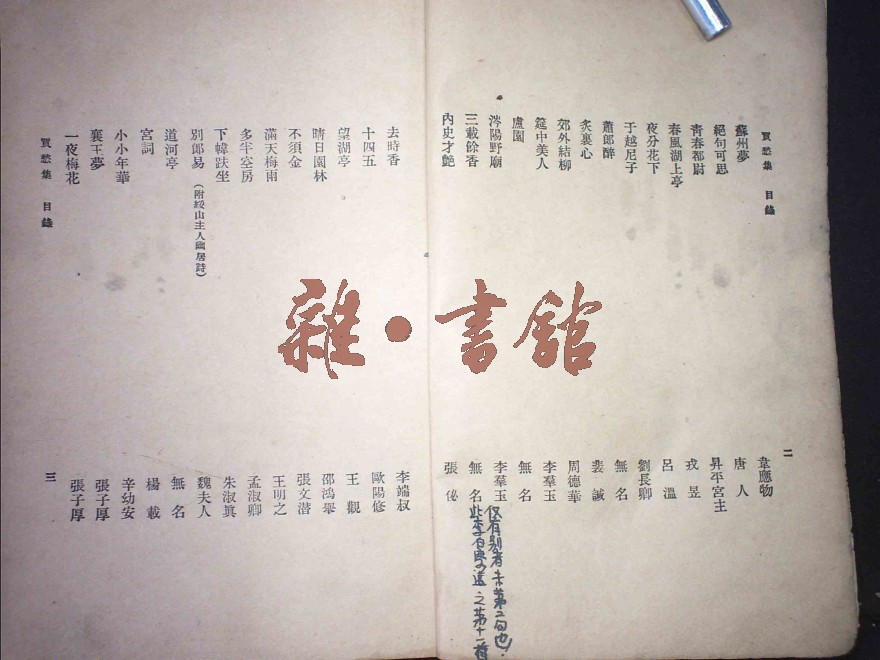 買愁集 目錄
二
蘇州夢 韋應物
絕句可思 唐人
青春都尉 昇平宮主
春風湖上亭 戎昱
夜分花下 呂溫
于越尼子 劉長卿
蕭郎醉 無名
炙裏心 裴諴
郊外結柳 周德華
筵中美人 李羣玉
盧園
涔陽野廟 李羣玉
三載餘香 無名
仅有别者末第二句也.
此李白 之第十一首
內史才艷 張泌
去時香 李端叔
十四五 歐陽修
望湖亭 王觀
晴日園林 邵鴻舉
不須金 張文潛
滿天梅雨 王明之
多半空房 孟淑卿
下幃趺坐 朱淑眞
別郎易（附綏山主人幽居詩） 魏夫人
道河亭 無名
宮詞 楊載
小小年華 辛幼安
襄王夢 張子厚
一夜梅花 張子厚
買愁集 目錄
三
雜·書館